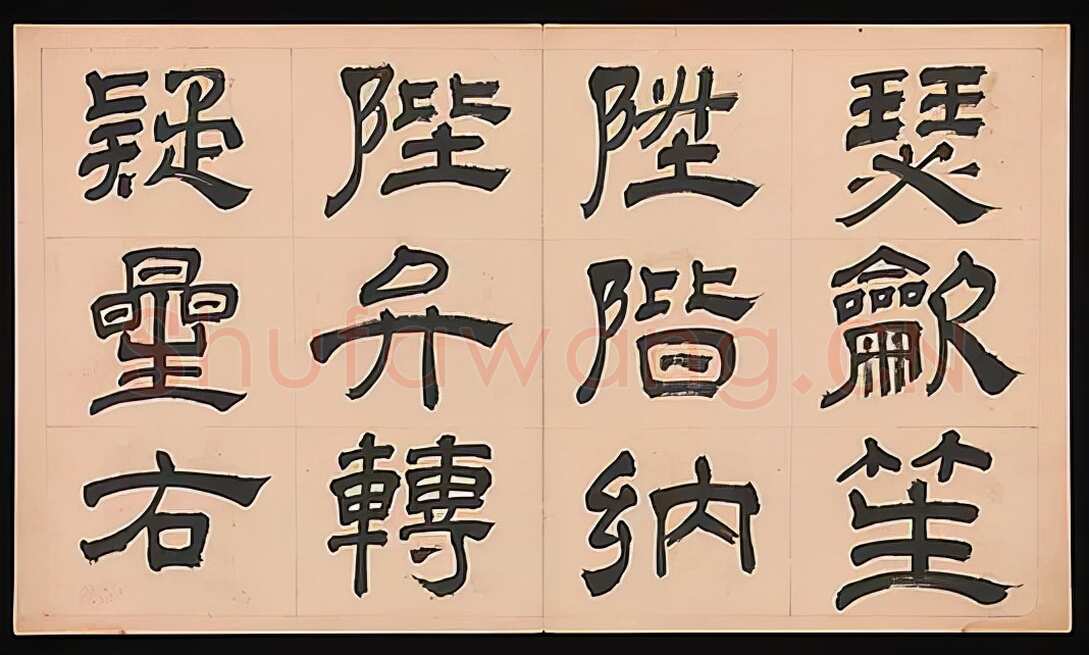 瑟龡笙
陞階納
陛弁轉
疑曐右
Shufawang.CN